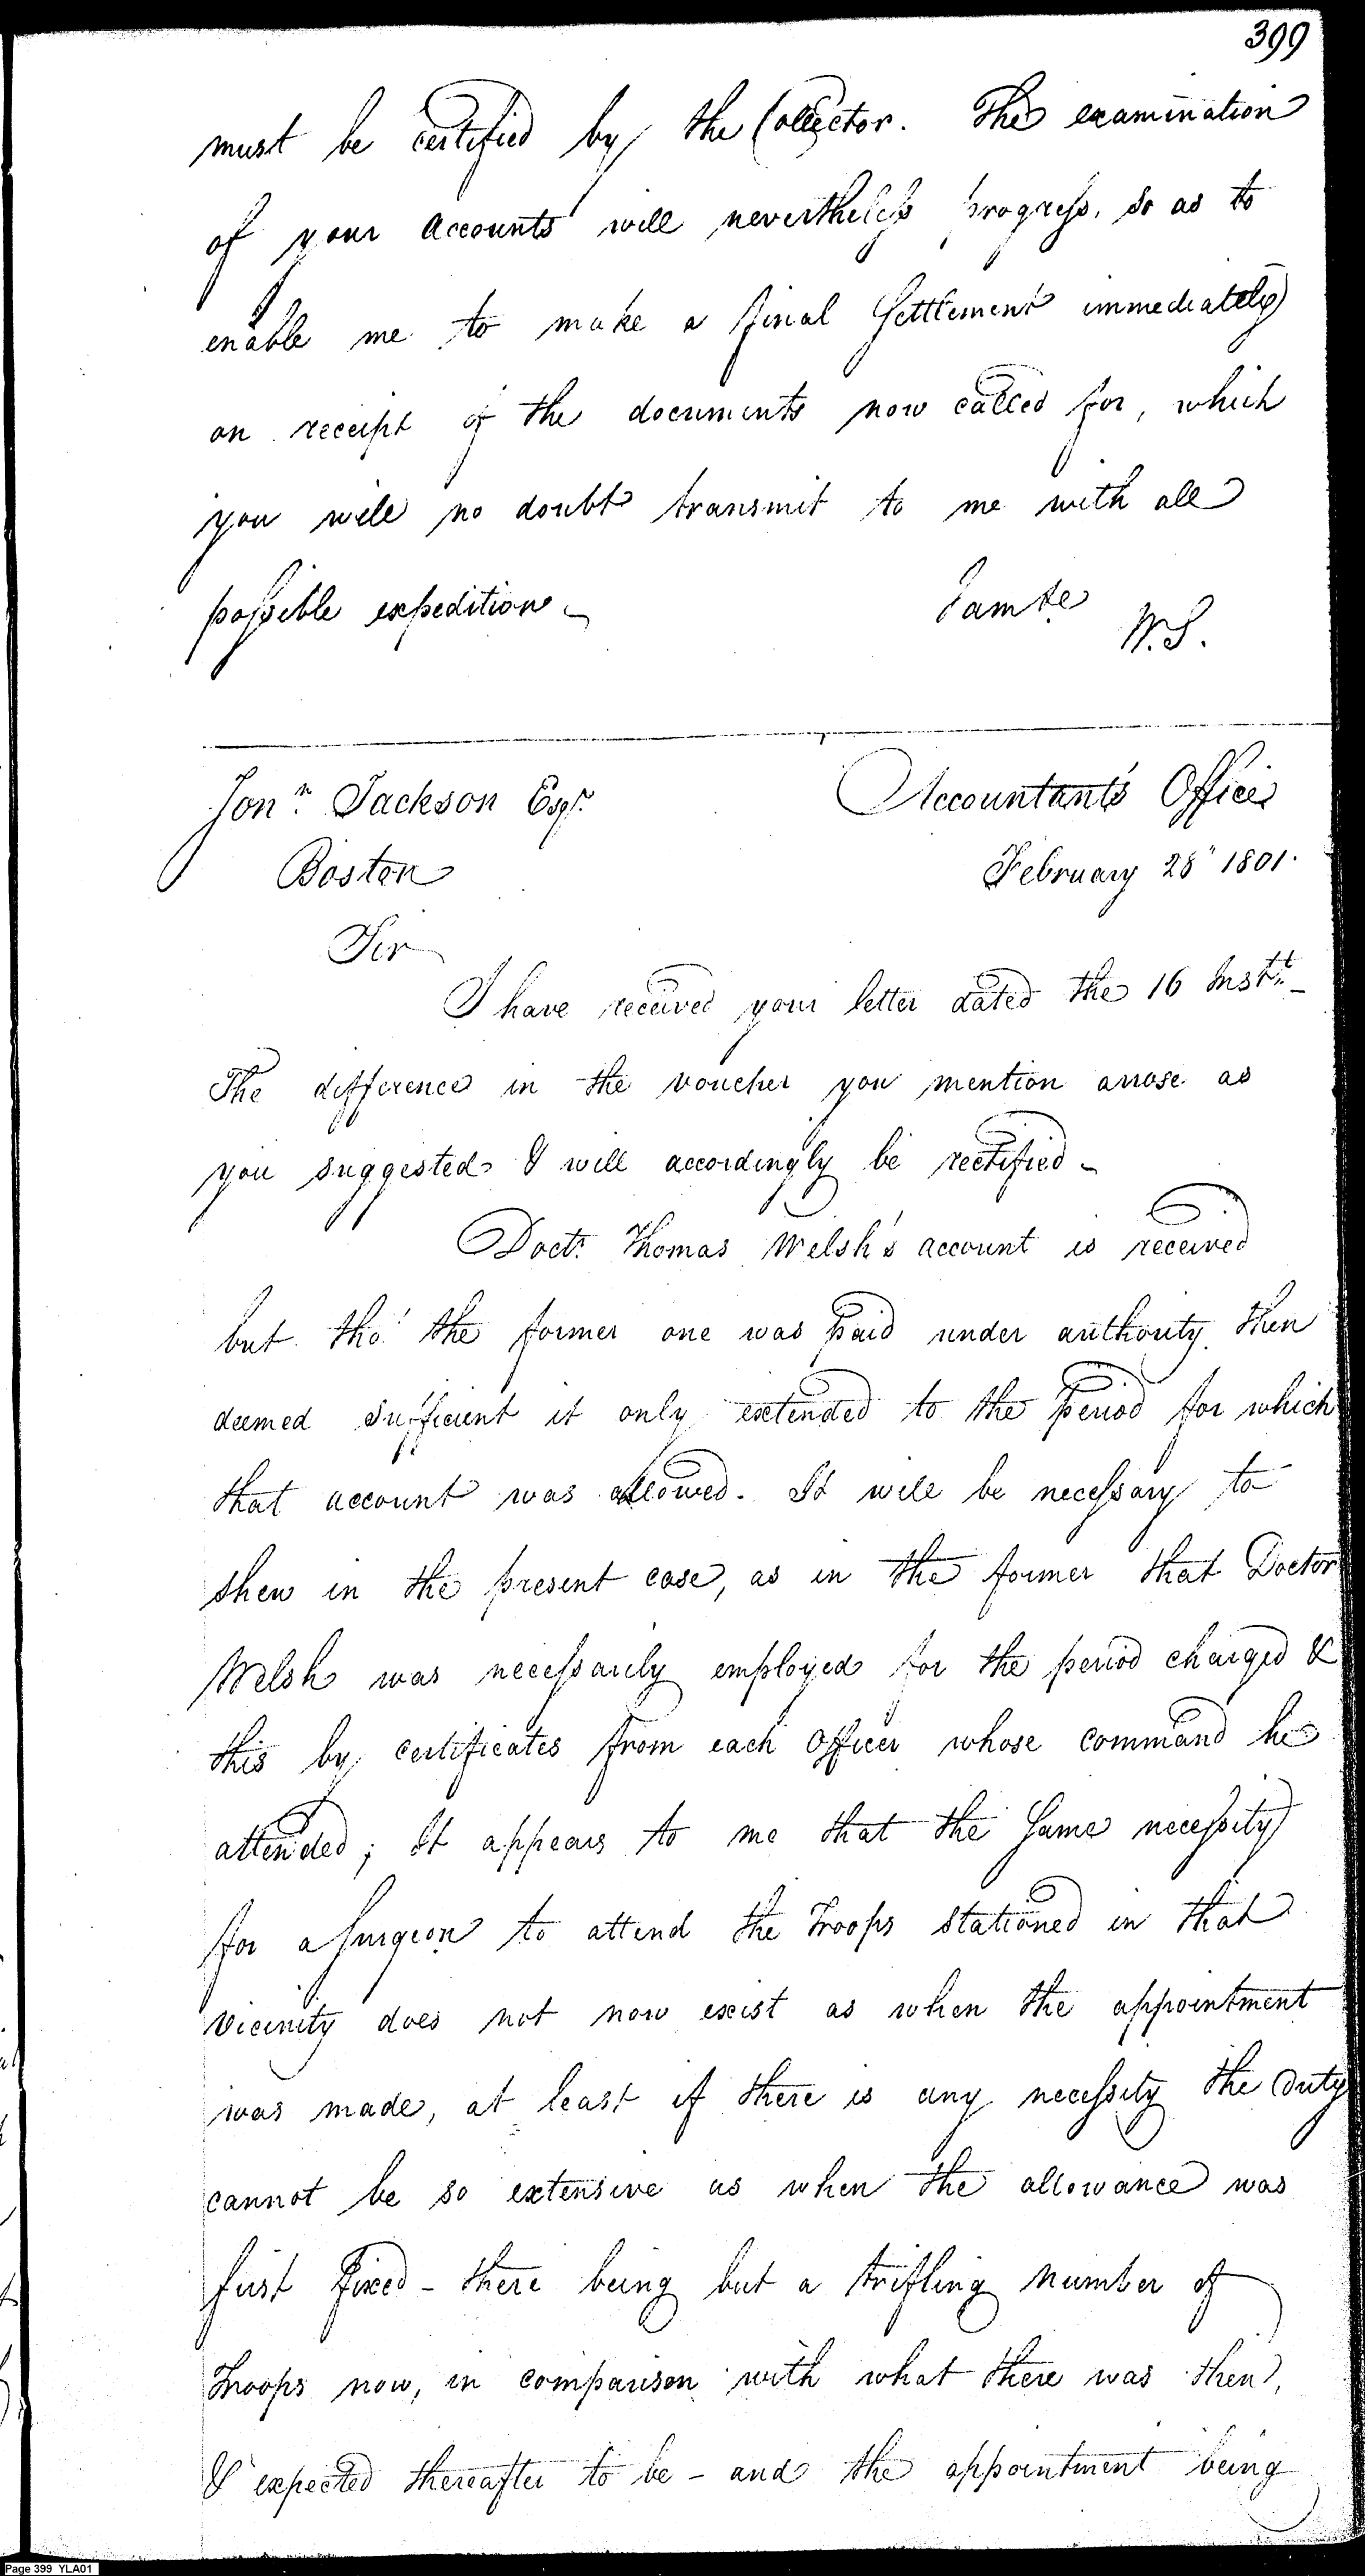 399
must be certified by the Collector. The examination
of your accounts will nevertheless progress, so as to
enable me to make a final Settlement immediately
on receipt of the documents now called for, which
you will no doubt transmit to me with all
possible expedition
I am &c
W.S.
Jonn. Jackson Esqr.
Accountants Office
Boston
February 28" 1801.
Sir
I have received your letter dated the 16 Instt.
The difference in the voucher you mention arose as
you suggested & will accordingly be rectified
Doctr. Thomas Welsh's account is received
but tho' the former one was paid under authority then
deemed sufficient it only extended to the period for which
that account was allowed. It will be necessary to
shew in the present case, as in the former that Doctor
Welsh was necessarily employed for the period charged &
this by certificates from each Officer whose command he
attended; It appears to me that the same necessity
for a surgeon to attend the Troops stationed in that
vicinity does not now exist as when the appointment
was made, at least if there is any necessity the duty
cannot be so extensive as when the allowance was
first fixed - there being but a trifling number of
Troops now, in comparison with what there was then,
& expected thereafter to be - and the appointment being
Page 399 YLA01